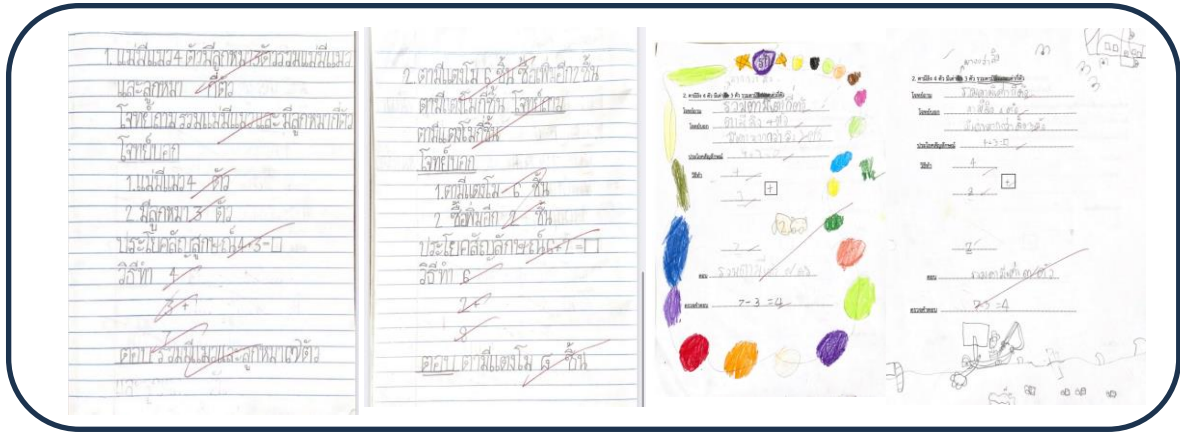 1. แม่มีแมว 4 ตัว มีลูกหมา 3 ตัว รวมแม่มีแมว
และลูกหมา กี่ตัว
โจทย์ถาม รวมแม่มีแมว และ มีลูกหมากี่ตัว
โจทย์บอก
1. แม่มีแมว 4 ตัว
2. มีลูกหมา 3 ตัว
ประโยคสัญลูกษณ์ 4+3=□
วิธีทำ 4
3 +
7
ตอบ รวมมีแมวและลูกหมา ๗ ตัว
2. ตามีแตงโม 6 ชิ้น ซื้อเพิ่มอีก 2 ชิ้น
ตามีแตงโมกี่ชิ้น โจทย์ถาม
ตามีแตงโมกี่ชิ้น
โจทย์บอก
1. ตามีแตงโม 6 ชิ้น
2 ซื้อเพิ่มอีก 2 ชิ้น
ประโยคสัญลักษณ์ 6+2=□
วิธีทำ 6
2+
8
ตอบ ตามีแตงโม ๘ ชิ้น
2. ตามีลิง 4 ตัว มีเต่า 3 ตัว รวมตามีเต่ากี่ตัว
โจทย์ถาม รวมตามีเต่ากี่ตัว
โจทย์บอก ตามีลิง 4 ตัว
มีเต่ามากกว่าลิง 3 ตัว
ประโยคสัญลักษณ์ 4+3=□
วิธีทำ 4
+
3
7
ตอบ
ตรวจคำตอบ 7-3=4
มากกว่าลิง
2. ตามีลิง 4 ตัว มีเต่า 3 ตัว รวมตามีเต่ากี่ตัว
โจทย์ถาม รวมตามีเต่ากี่ตัว
โจทย์บอก ตามีลิง 4 ตัว
มีเต่ามากกว่าลิง 3 ตัว
ประโยคสัญลักษณ์ 4+3=□
วิธีทำ 4
+
3
7
ตอบ รวมตามีเต่า ๗ ตัว
ตรวจคำตอบ 7-3=4